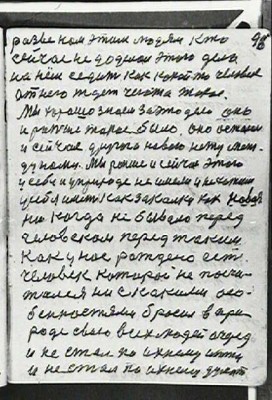 98
разве ком этим людям кто
сейчас не доделал этого дела
на нём сидит как какой то человек
от него ждет чего то такого.
Мы хорошо знаем за это дело оно
и раньше такое было, оно осталось
и сейчас другого нового нету между
думами. Мы раньше и сейчас этого
у себя и у природе не имели и не хотим
у себя иметь как закалку как новое
никогда не бывало перед
человеком перед таким
как у нас рождено есть
человек который не посчи
тался ни с какими осо
бенностями бросил в при
роде свою всех людей очередь
и не стал по ихнему итти
и не стал по ихнему думать